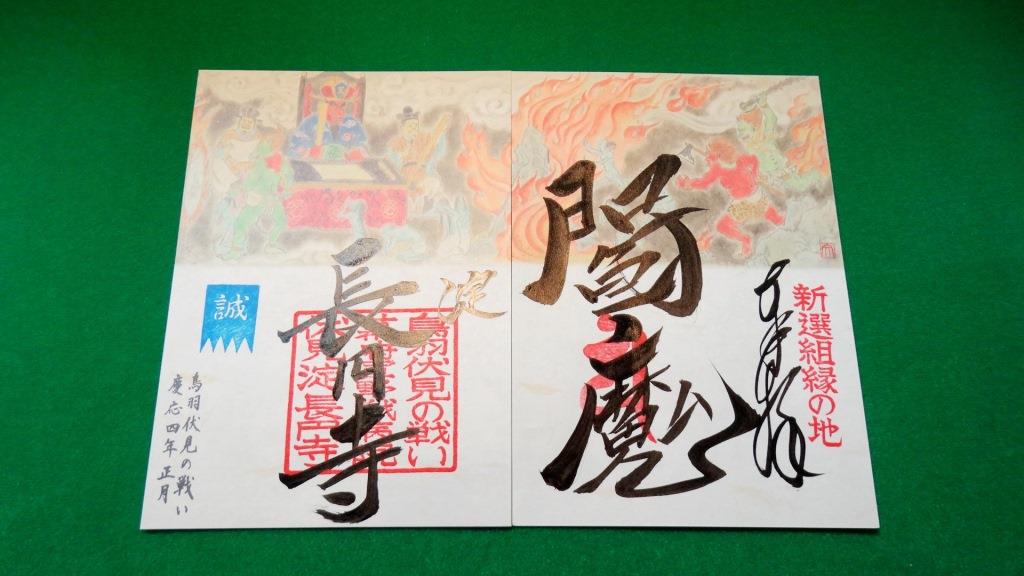 新選組縁の地
奉拝
閻魔
淀
長円寺
鳥羽伏見の戦い
幕府軍野戦病院
伏見淀長円寺
誠
鳥羽伏見の戦い
慶応四年 正月